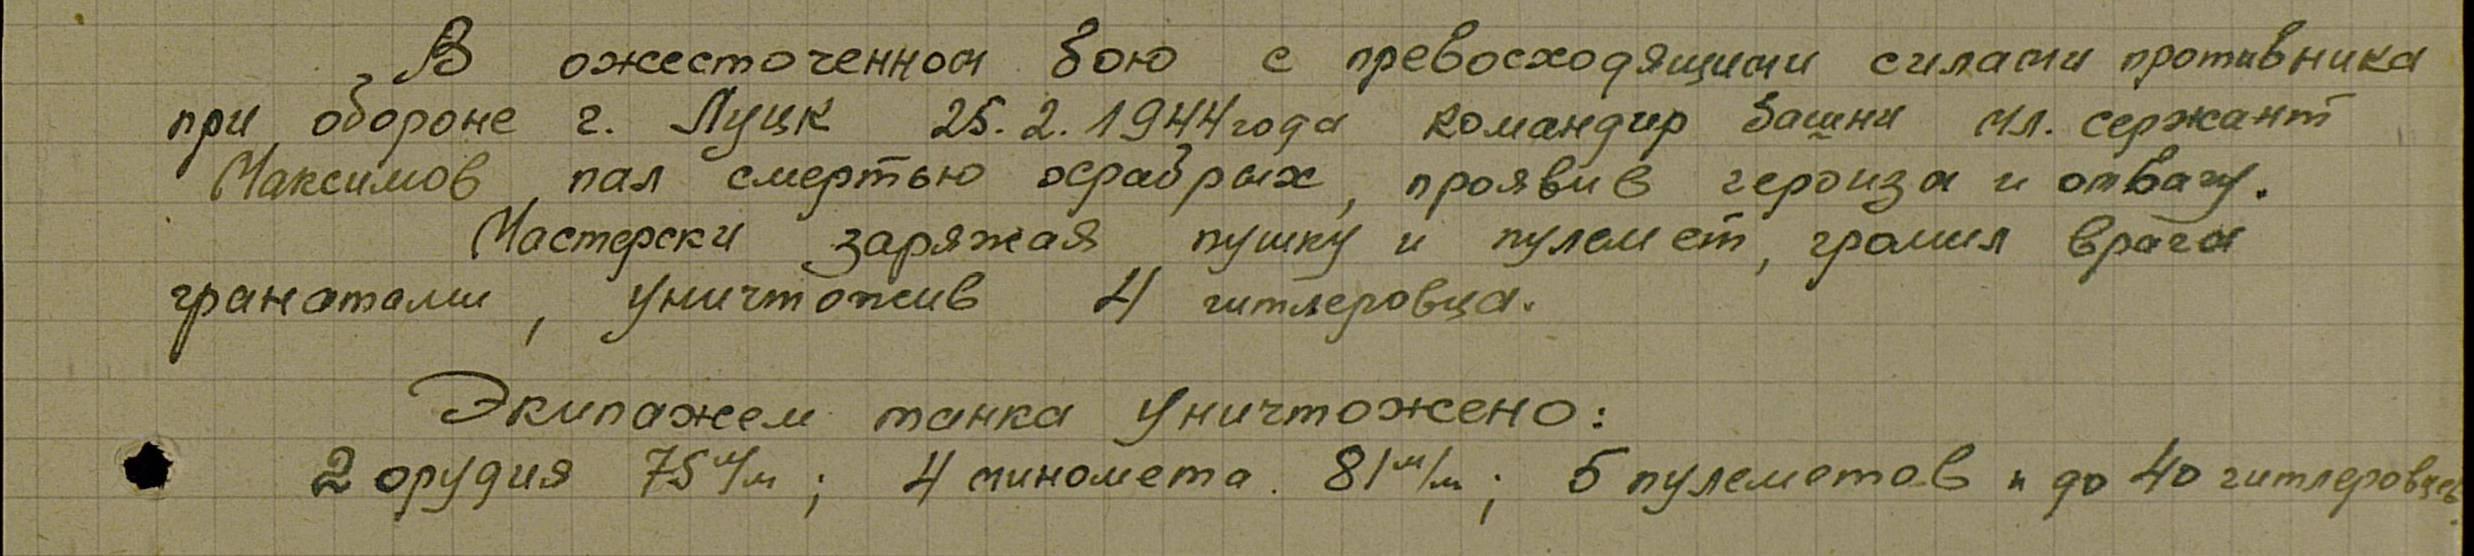 В ожесточенном бою с превосходящими силами противника
при обороне г. Луцк 25.2.1944 года командир башни мл. сержант
Максимов пал смертью храбрых, проявив героизм и отвагу.
Мастерски заряжая пушку и пулемет, громил врага
гранатами, уничтожив 4 гитлеровца.
Экипажем танка уничтожено:
2 орудия 75 м/м; 4 миномета 81 м/м; 5 пулеметов и до 40 гитлеровцев.